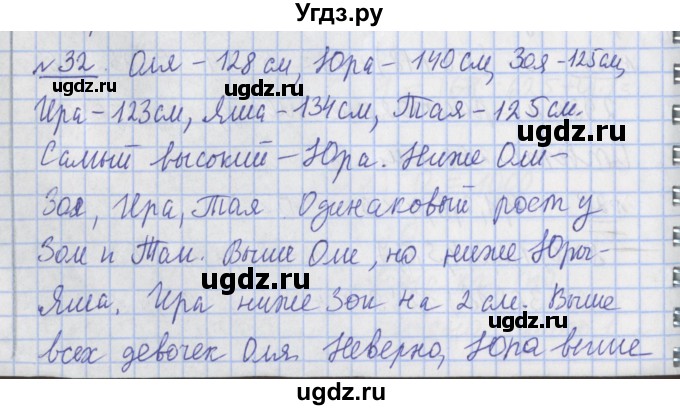 Угдз.ру
№32. Оля - 128 см, Юра - 140 см, Зоя - 125 см,
Ира - 123 см, Яша - 134 см, Тая - 125 см.
ugdz.ru ugdz.ru
Самый высокий - Юра. Ниже Оли -
Зоя, Ира, Тая. Одинаковый рост у
ugdz.ru ugdz.ru
Зои и Таи. Выше Оли, но ниже Юры -
Яша. Ира ниже Зои на 2 см. Выше
ugdz.ru ugdz.ru
всех девочек Оля. Неверно, Юра выше
ugdz.ru